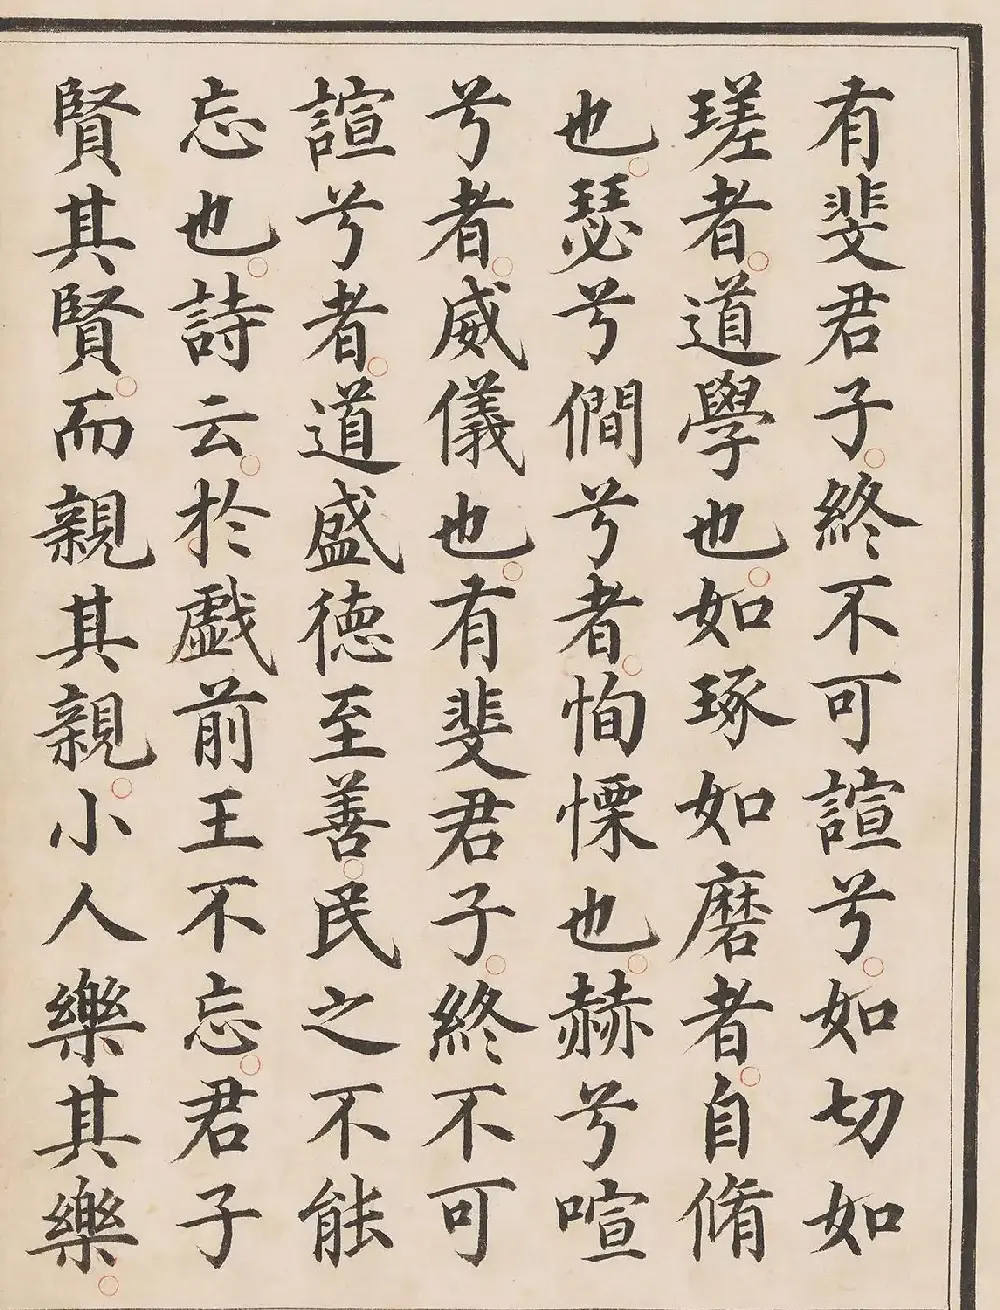 有斐君子終不可諠兮如切如
瑳者道學也如琢如磨者自脩
也瑟兮僩兮者恂慄也赫兮喧
兮者威儀也有斐君子終不可
諠兮者道盛徳至善民之不能
忘也詩云於戯前王不忘君子
賢其賢而親其親小人樂其樂